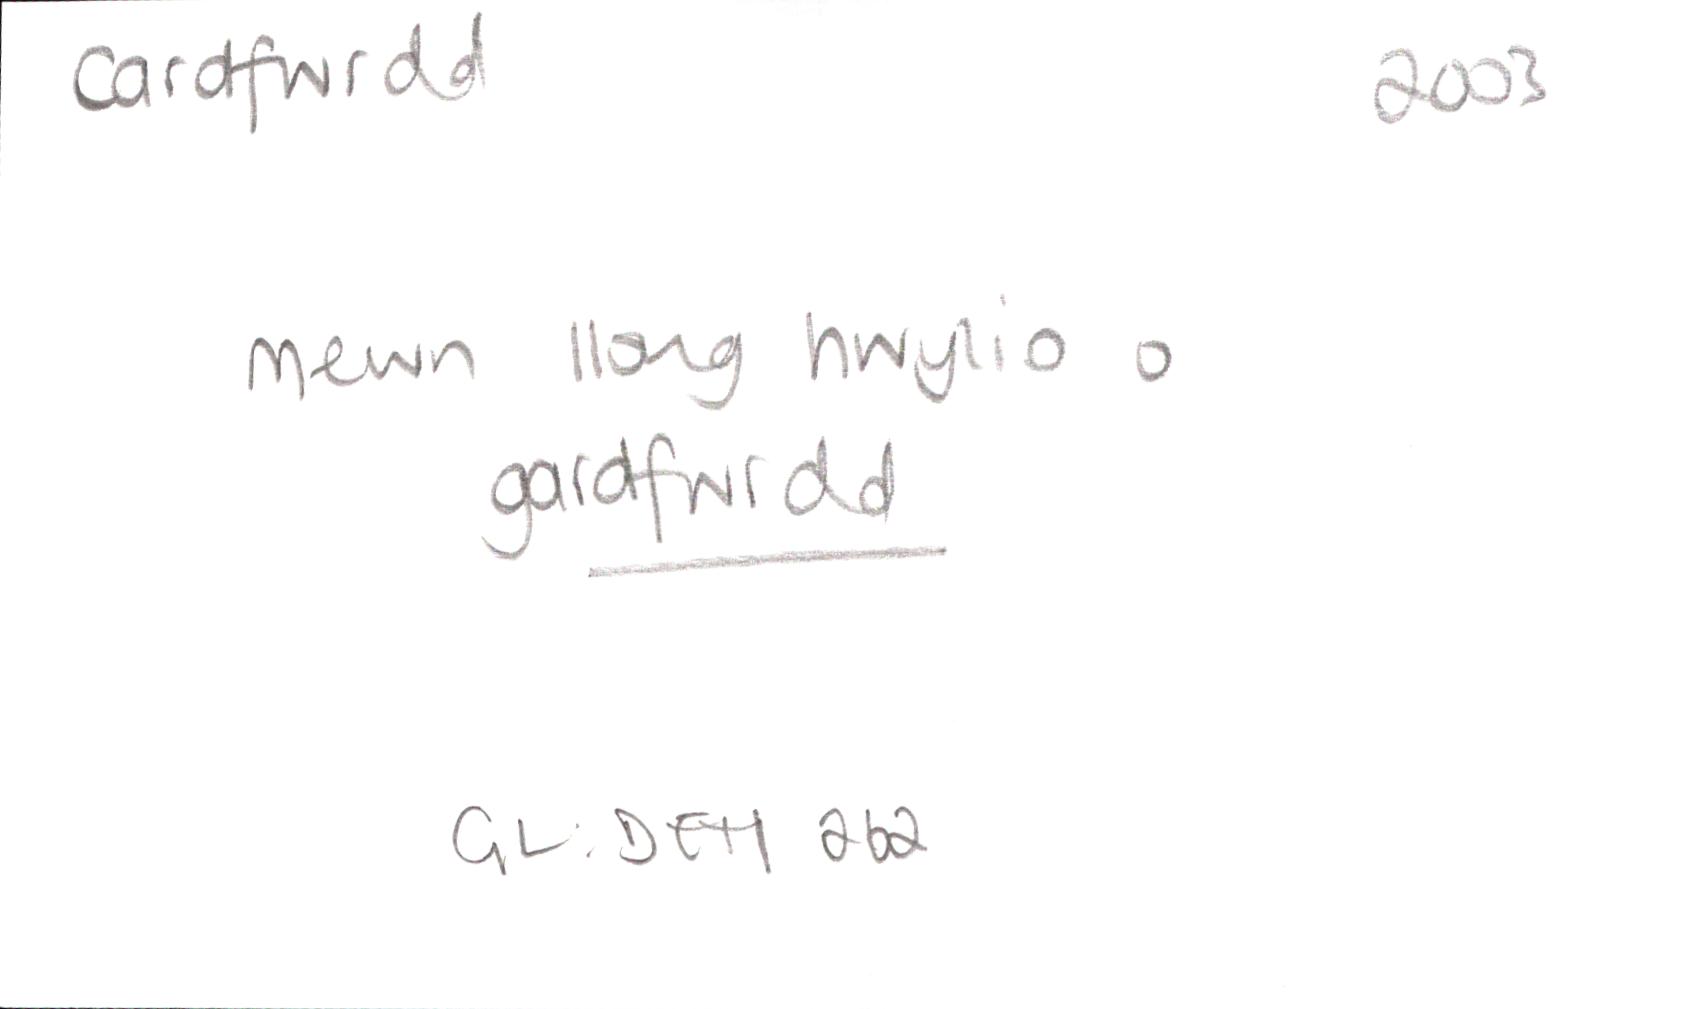 Cardfwrdd 2003
mewn llong hwylio o
gardfwrdd
GL: DEH 262